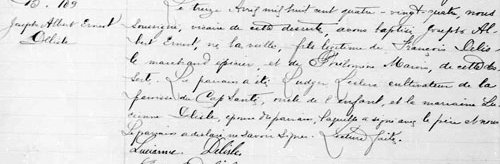 B. 109
Joseph Albert Ernest
Delisle
Le treize Avril mil huit cent quatre-vingt-quatre, nous
soussigné, vicaire de cette desserte, avons baptisé Joseph Al-
bert Ernest, né la veille, fils légitime de François Delis-
le marchand épicier, et de Philomène Marin, de cette des-
serte. Le parrain a été Ludger Leclerc cultivateur de la
paroisse du Cap Santé, oncle de l'enfant, et la marraine Lu-
cienne Delisle, épouse du parrain, laquelle a signé avec le père et nous.
Le parrain a déclaré ne savoir signer. Lecture faite.
Lucienne Delisle